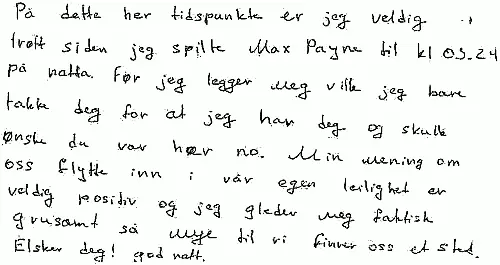 På dette her tidspunkte er jeg veldig
trøtt siden jeg spilte Max Payne til kl 03.24
på natta. Før jeg legger meg ville jeg bare
takke deg for at jeg har deg og skulle
ønske du var hær no. Min mening om
oss flytte inn i vår egen leilighet er
veldig positiv og jeg gleder meg faktisk
grusomt så mye til vi finner oss et sted.
Elsker deg! god natt.